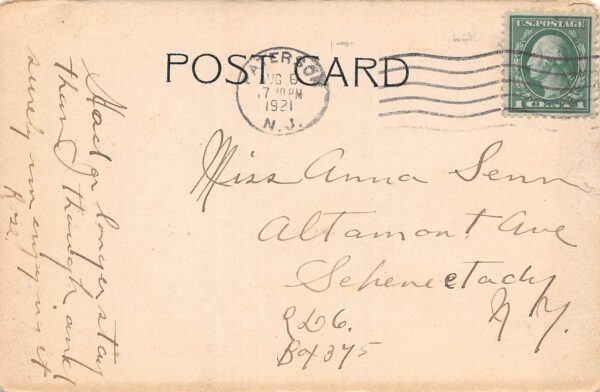 POST CARD
PATERSON
AUG 8
7 30 PM
1921
N.J.
U.S. POSTAGE
1 CENT 1
Had a longer stay
than I thought and
surely am enjoying it
Rose.
Miss Anna Senn
Altamont Ave
Schenectady
N.Y.
RD6.
Box 375